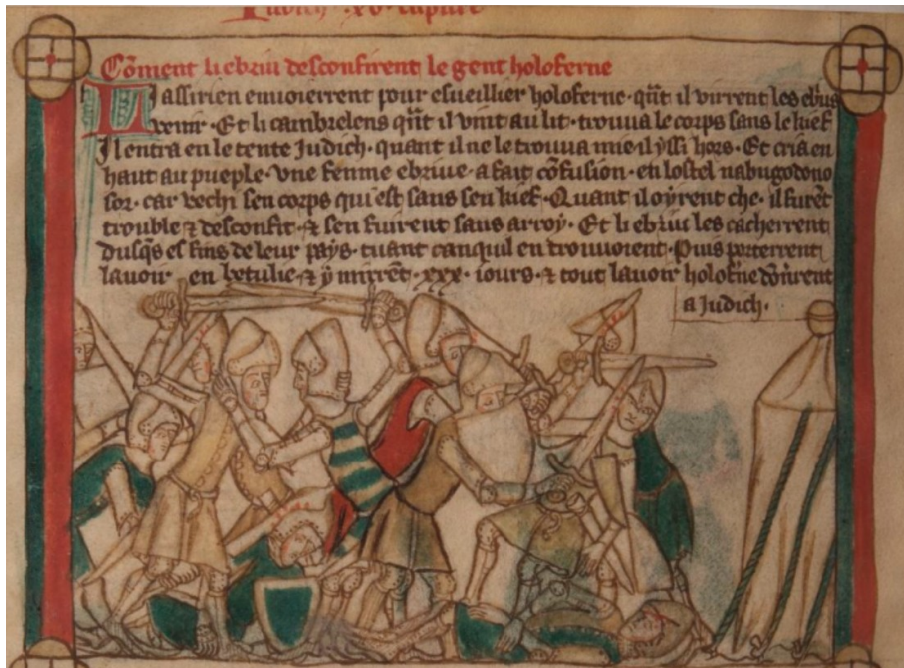 Judich · xv · capitre
Cōment li ebriu desconfirent le gent holoferne
Li assirien enuoierrent pour esueillier holoferne · qūt il virrent les ebrius
venir · Et li cambrelens qūt il vint au lit · trouua le corps sans le kief
Il entra en le tente Judich · quant il ne le trouua mie il yssi hors · Et cria en
haut au pueple · Vne femme ebriue · a fait cōfusion · en lostel nabugodono
sor · car vechi sen corps qui est sans sen kief · Quant il oyrent che · il furēt
trouble ⁊ desconfit · ⁊ sen fuirent sans arroy · Et li ebriu les cacherrent
dusqs es fins de leur pays · tuant canquil en trouuoient · Puis porterrent
lauoir en betulie · ⁊ y mirrēt · xxx · iours · ⁊ tout lauoir holofne dōnrent
a Judich ·